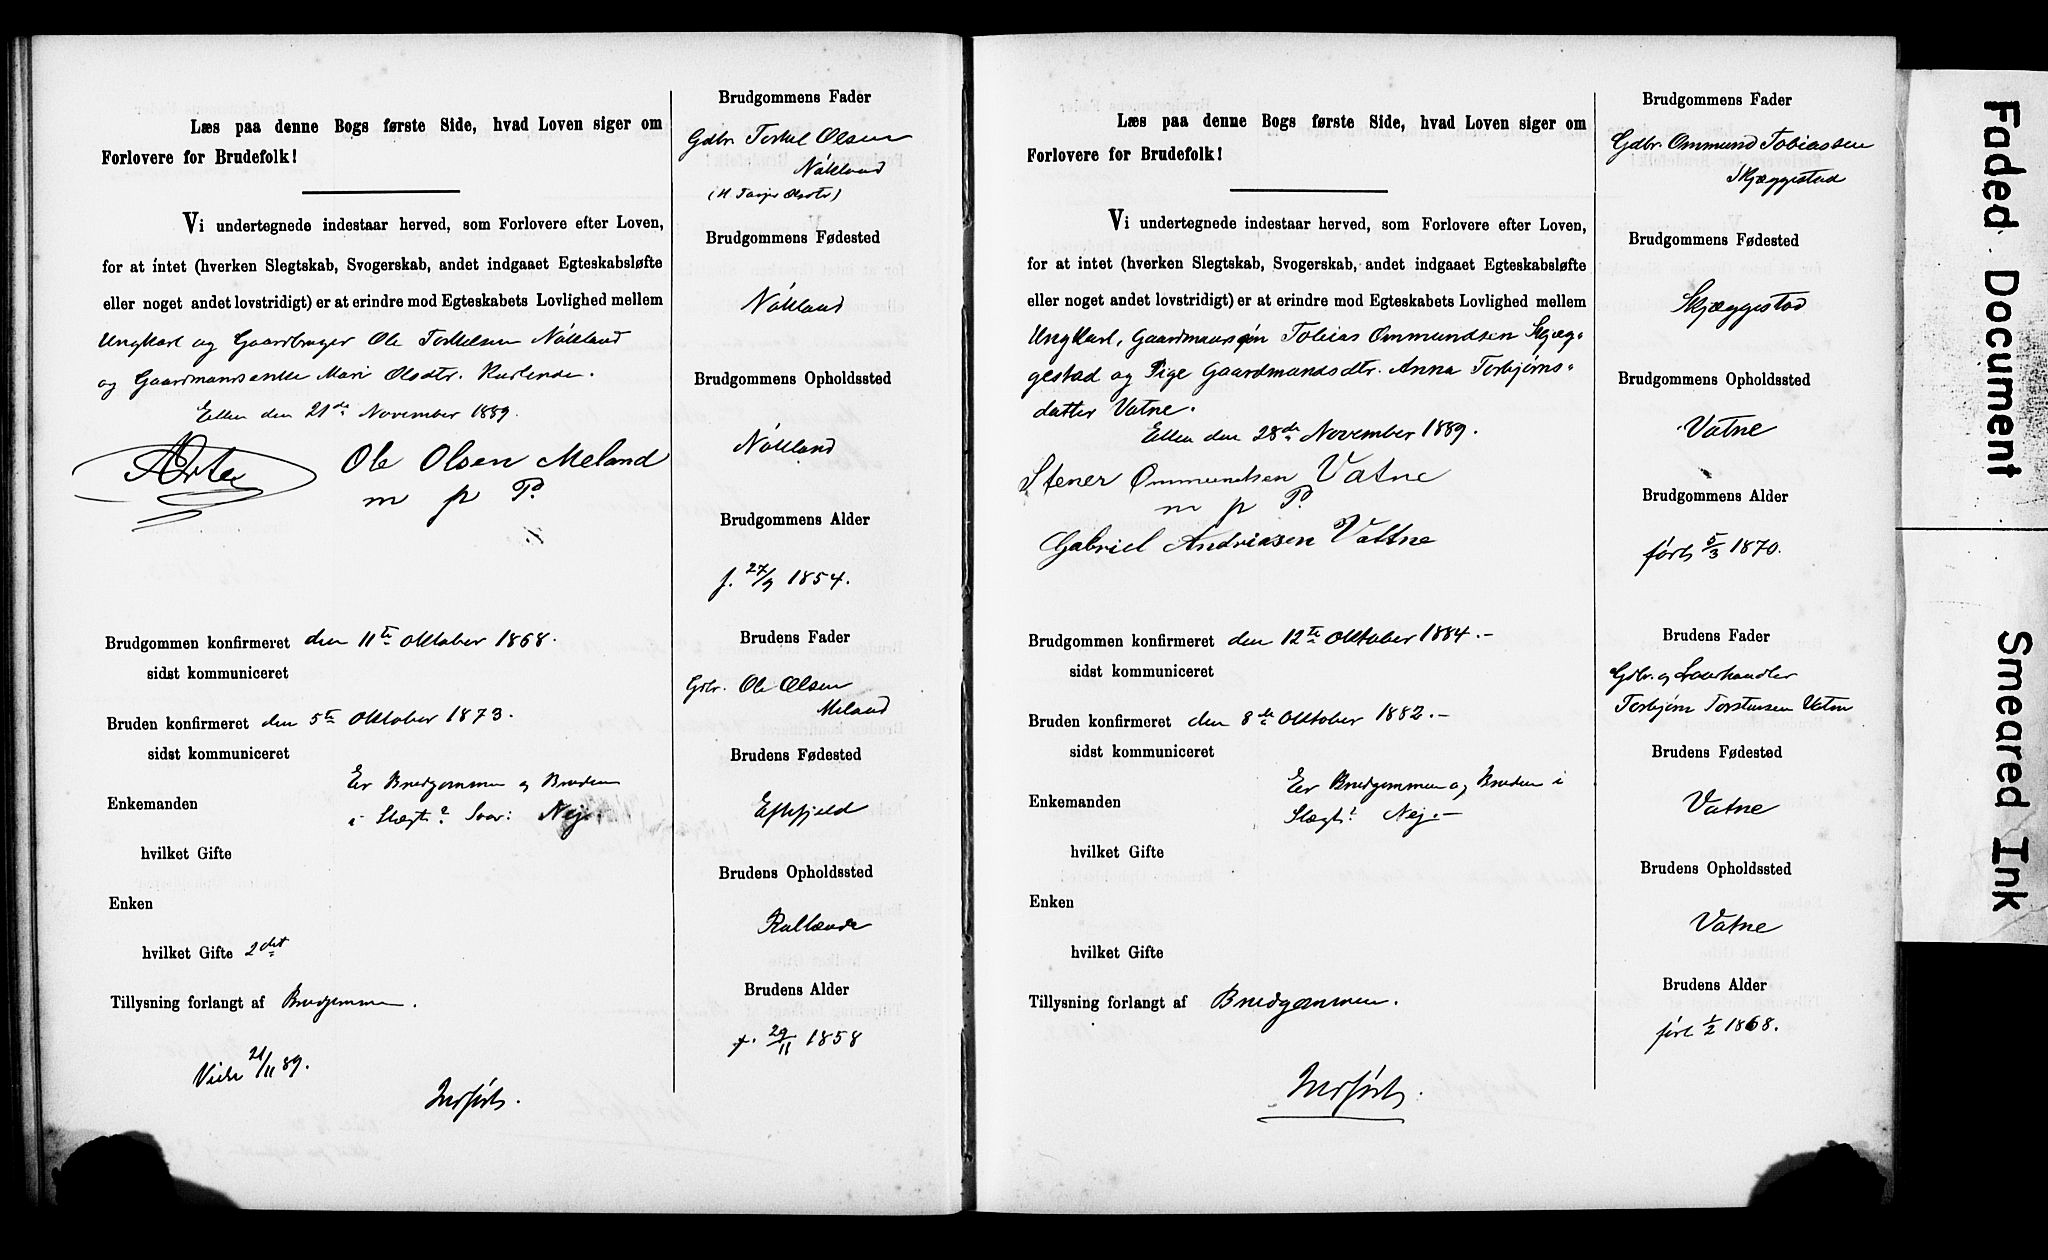 Læs paa denne Bogs første Side, hvad Loven siger om
Forlovere for Brudefolk!
Vi undertegnede indestaar herved, som Forlovere efter Loven,
for at intet (hverken Slegtskab, Svogerskab, andet indgaaet Egteskabsløfte
eller noget andet lovstridigt) er at erindre mod Egteskabets Lovlighed mellem
Ungkarl og Gaardbruger Ole Torkelsen Nökland
og Gaardmandsenke Mari Olsdtr.
den 21de November 1889.
Ole Olsen Meland
m p P.
Brudgommen konfirmeret den 11te Oktober 1868.
sidst kommuniceret
Bruden konfirmeret den 5te Oktober 1873.
sidst kommuniceret
Er Brudgommen og Bruden
Enkemanden
i Slægt? Svar: Nej.
hvilket Gifte
Enken
hvilket Gifte 2det
Tillysning forlangt af Brudgommen.
Viede 21/11 89.
Indført.
Brudgommens Fader
Gdbr. Torkel Olsen
Nökland
Brudgommens Fødested
Nökland
Brudgommens Opholdssted
Nökland
Brudgommens Alder
f. 27/9 1854.
Brudens Fader
Gdbr. Ole Olsen
Meland
Brudens Fødested
Eftefjeld
Brudens Opholdssted
Brudens Alder
f. 29/11 1858
Læs paa denne Bogs første Side, hvad Loven siger om
Forlovere for Brudefolk!
Vi undertegnede indestaar herved, som Forlovere efter Loven,
for at intet (hverken Slegtskab, Svogerskab, andet indgaaet Egteskabsløfte
eller noget andet lovstridigt) er at erindre mod Egteskabets Lovlighed mellem
Ungkarl, Gaardmansøn Tobias Ommundsen Skjæg-
gestad og Pige Gaardmandsdtr. Anna Torbjørns-
datter Vatne.
den 28de November 1889.
Stener Ommundsen Vatne
m p P.
Gabriel Andriasen Vattne
Brudgommen konfirmeret den 12te Oktober 1884.-
sidst kommuniceret
Bruden konfirmeret den 8de Oktober 1882.-
sidst kommuniceret
Er Brudgommen og Bruden i
Enkemanden
Slægt? Nej.-
hvilket Gifte
Enken
hvilket Gifte
Tillysning forlangt af Brudgommen.
Indført.
Brudgommens Fader
Gdbr. Ommund Tobiassen
Skjæggestad
Brudgommens Fødested
Skjæggestad
Brudgommens Opholdssted
Vatne
Brudgommens Alder
født 5/3 1870.
Brudens Fader
Gdbr. og
Torbjørn Torstensen Vatne
Brudens Fødested
Vatne
Brudens Opholdssted
Vatne
Brudens Alder
født 1/2 1868.
Faded Document
Smeared Ink